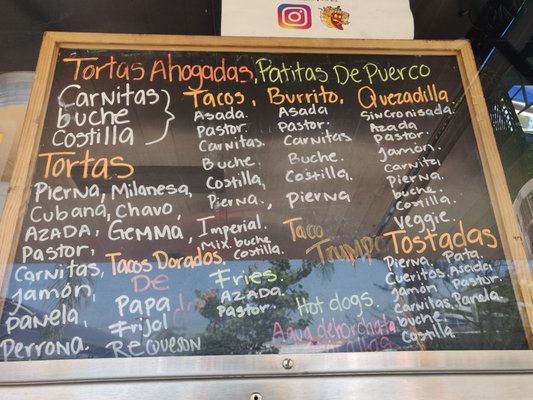 Tortas Ahogadas, Patitas De Puerco
Carnitas
buche
Costilla
Tacos,
Asada.
Pastor.
Carnitas.
Buche.
Costilla,
Pierna.,
Imperial.
Mix. buche
Costilla.
Burrito,
Asada
Pastor.
Carnitas
Buche.
Costilla.
Pierna
Quezadilla
Sincronisada.
Azada
Pastor.
Jamón.
Carnita,
Pierna.
buche.
Costilla.
Veggie.
Tortas
Pierna, Milanesa,
Cubana, Chavo,
AZADA, GEMMA,
Pastor,
Carnitas,
Jamón,
Panela,
Perrona.
Tacos Dorados.
De
Papa
Frijol
Requeson
Fries.
AZADA.
Pastor.
Taco
Trumpo
Hot dogs.
Agua de horchata
Tostadas
Pierna, Pata.
Cueritos, Ascida,
Jamón, Pastor.
Carnitas, Panela,
buche
Costilla.